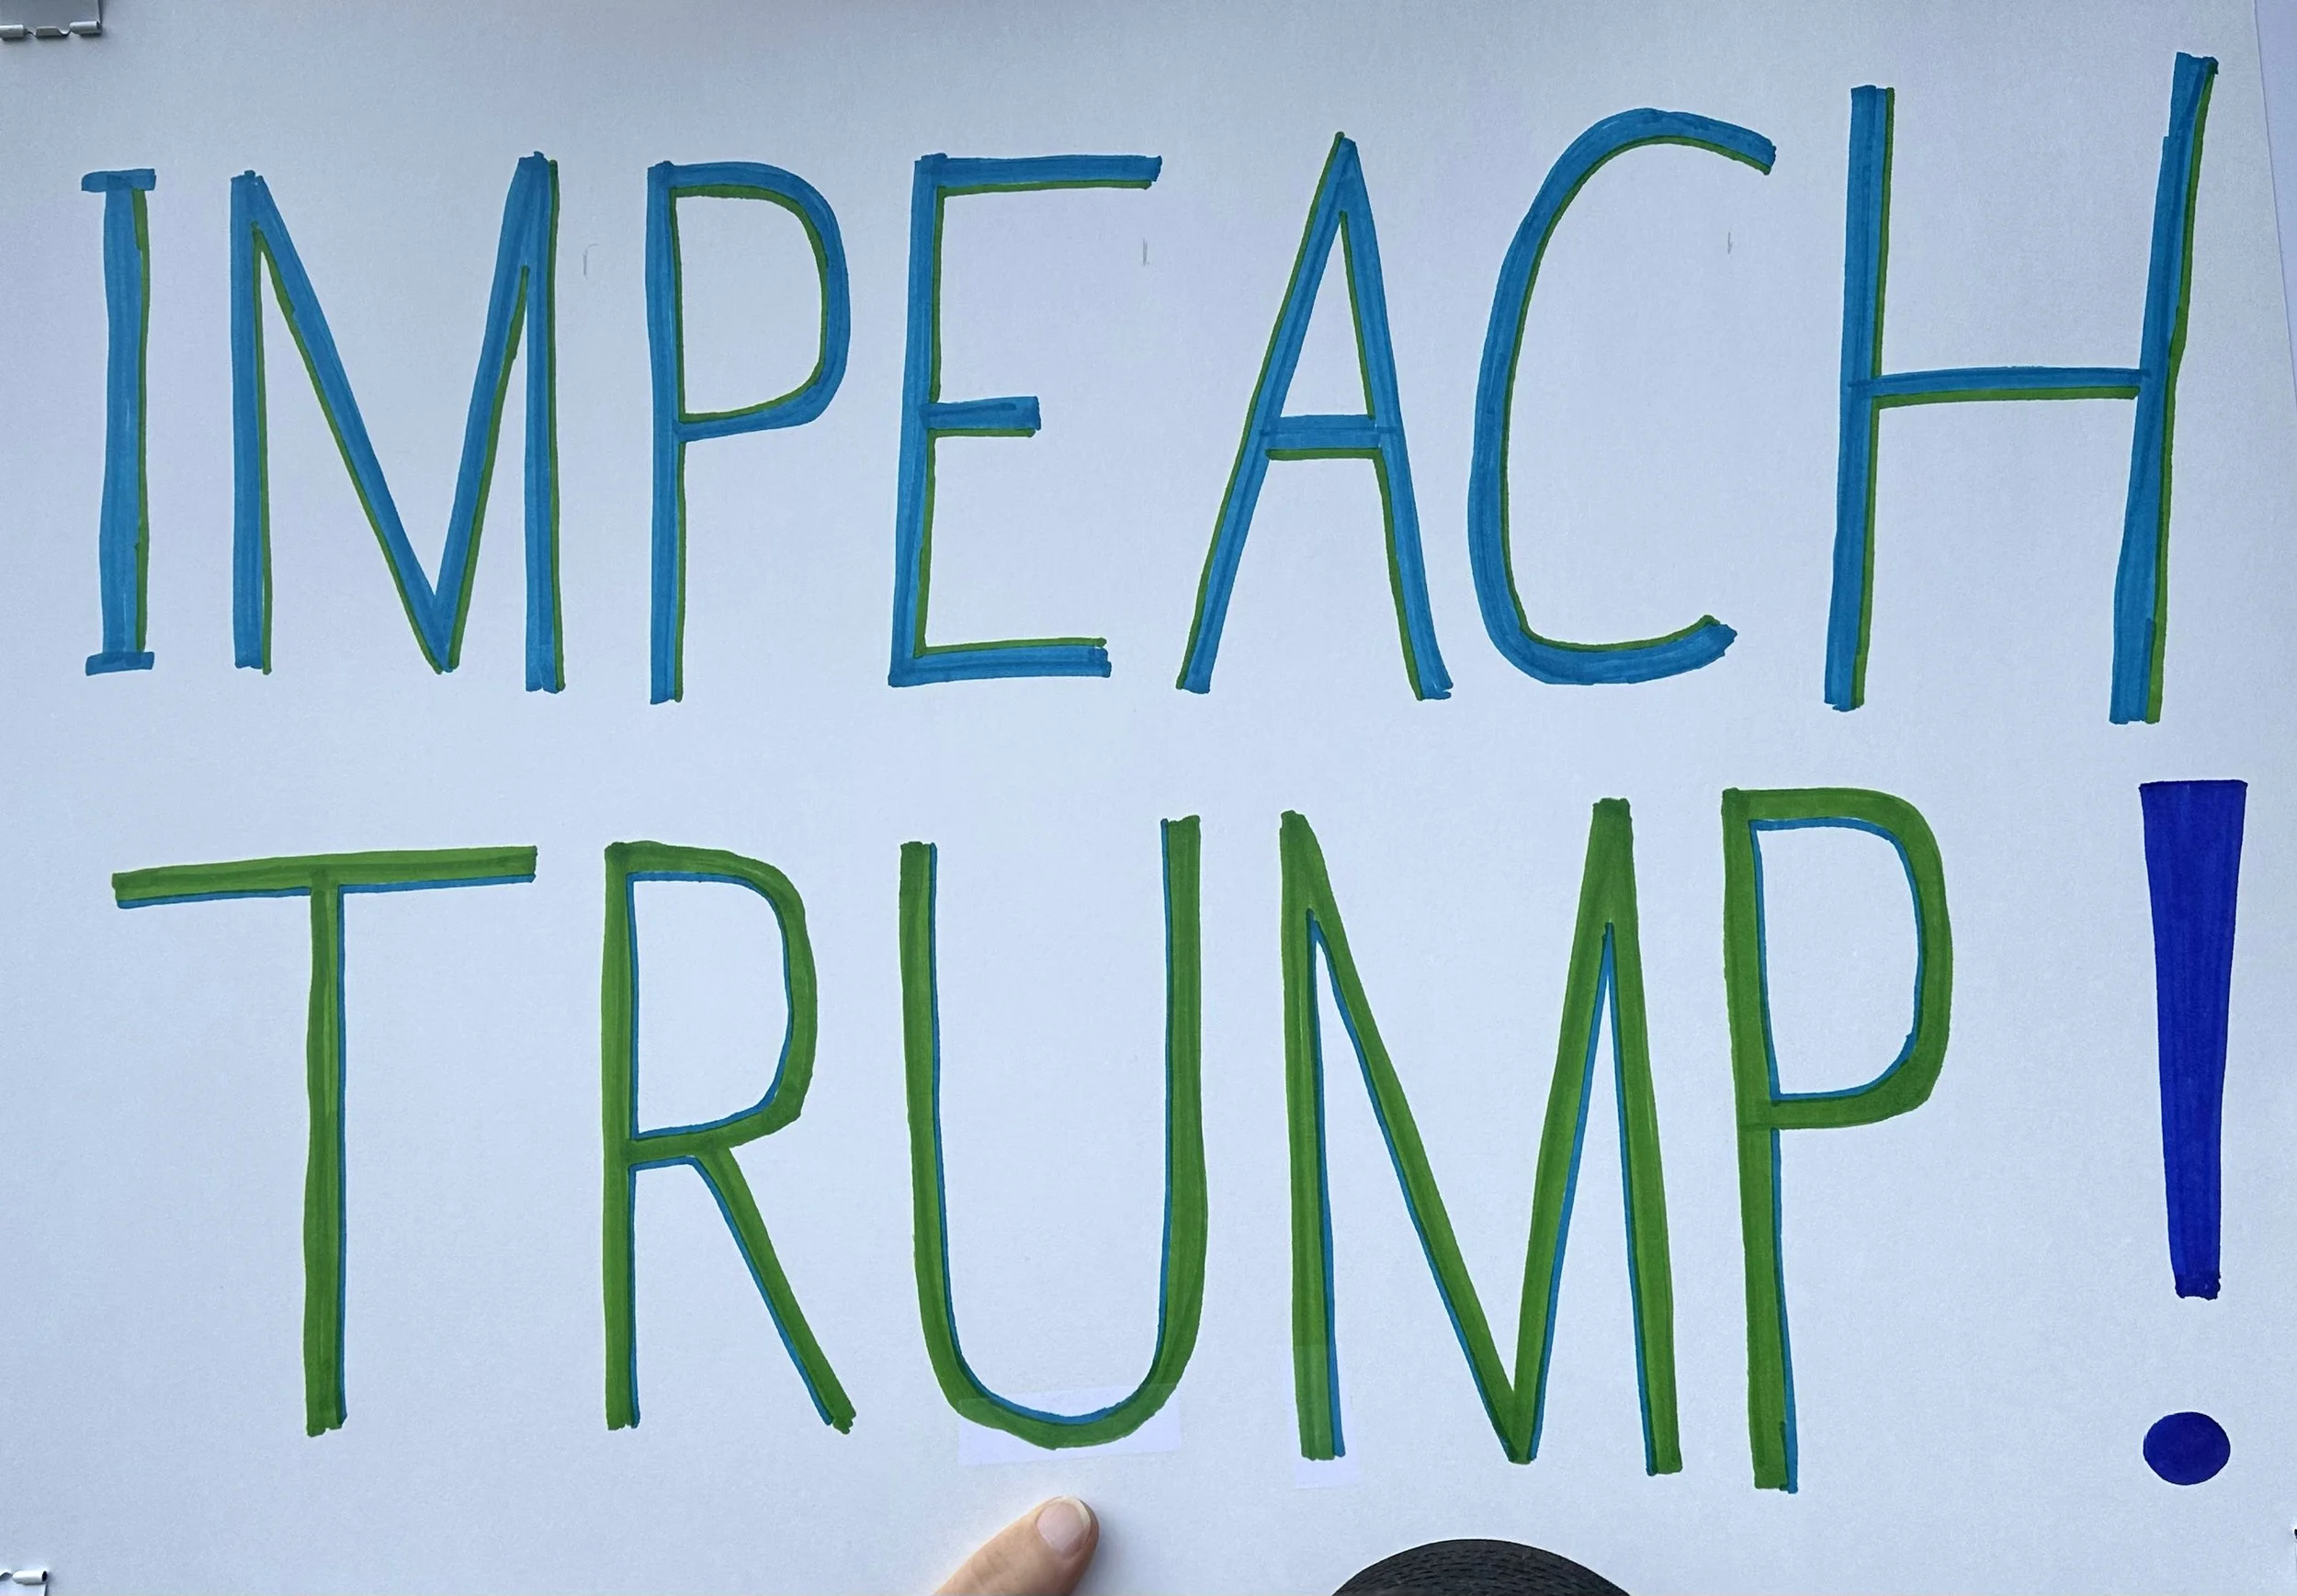 IMPEACH
TRUMP!